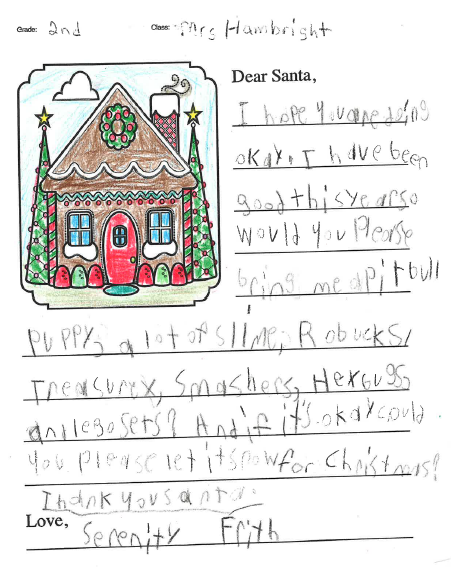 Grade: 2nd Class: Mrs Hambright
Dear Santa,
I hope you are doing
okay. I have been
good this year so
would you Please
bring me a pitbull
puppy, a lot of slime, Robucks,
Treasurex, Smashers, Hexbugss
and lego sets? And if it's okay could
you please let it snow for Christmas?
Thank you santa.
Love, Serenity Frith